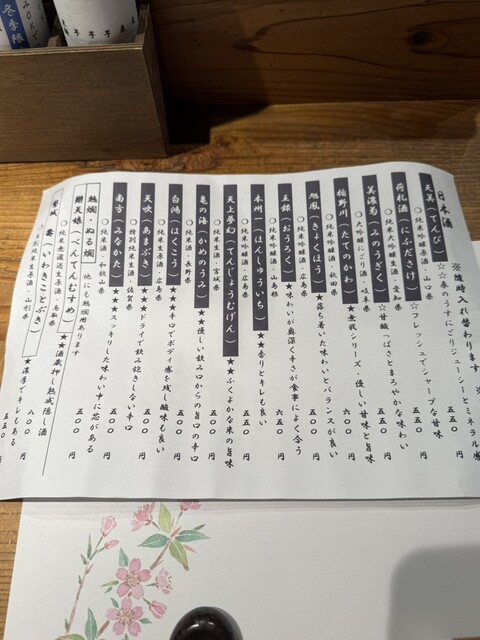 日本酒
※随時入れ替わります
天美(てんび)
☆☆春のうすにごりジューシーとミネラル感
○純米吟醸原酒・山口県
五五〇円
荷札酒(にふだざけ)
☆フレッシュでシャープな甘味
○純米大吟醸生酒・
五五〇円
美濃菊(みのうぎく)
☆甘酸っぱさとまろやかな味わい
○大吟醸にごり酒・岐阜県
五〇〇円
楯野川(たてのかわ)
★無我シリーズ・優しい甘味と旨味
○純米吟醸酒・山形県
六〇〇円
旭鳳(きょくほう)
★落ち着いた味わいとバランスが良い
五五〇円
王録(おうろく)
★味わいが奥深く辛さが食事によく合う
六五〇円
本州一(ほんしゅういち)
★★香りとキレも良い
○純米吟醸酒・広島県
五〇〇円
天上夢幻(てんじょうむげん)
★★ふくよかな米の旨味
五〇〇円
亀の海(かめのうみ)
★★優しい飲み口からの旨口の辛口
○純米酒・長野県
五〇〇円
白鴻(はくこう)
★★★辛口でボディ感を残し酸味も良い
○純米生原酒・広島県
五〇〇円
天吹(あまぶき)
★★ドライで飲み飽きしない辛口
○特別純米生酒・佐賀県
五〇〇円
南方(みなかた)
★★スッキリした味わい中に芯がある
五〇〇円
熱燗・ぬる燗
他にも熱燗用あります
辨天娘(べんてんむすめ)
★★酒蔵押し熟成隠し酒
○純米無濾過生原酒・鳥取県
八〇〇円
★濃厚でキレもある
五五〇円